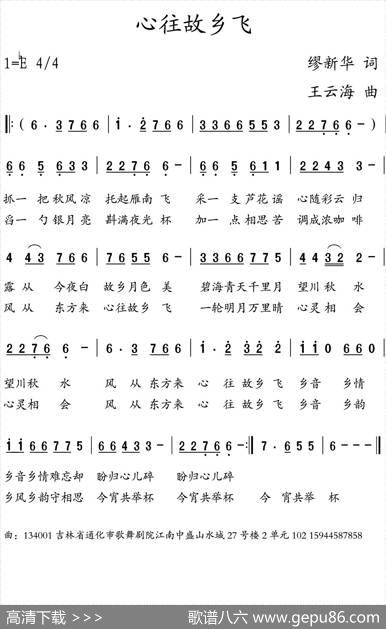 心往故乡飞
1=♭E 4/4
缪新华 词
王云海 曲
‖:( 6· 3 7 6 6 | i· 2 7 6 6 | 3 3 6 6 5 5 3 | 2 2 7 6 6 - ) |
6 6 5 6 3 3 | 2 2 7 6 6 - | 6 6 5 6 1 1 | 2 2 4 3 3 - |
抓一 把秋风凉 托起雁南 飞 采一 支芦花谣 心随彩云 归
舀一 勺银月亮 斟满夜光 杯 加一 点相思苦 调成浓咖 啡
4 4 3 7 6 6 | 7 6 5 6 6 - | 3 3 6 6 7 7 5 | 4 4 3 2 2 - |
露 从 今夜白 故乡月色 美 碧海青天千里月 望川秋 水
风 从 东方来 心往故乡 飞 一轮明月万里晴 心灵相 会
2 2 7 6 6 - | 6· 3 7 6 6 | i· 2 3 2 2 | i i 0 6 6 0 |
望川秋 水 风 从 东方来 心 往 故乡 飞 乡音 乡情
心灵相 会 风 从 东方来 心 往 故乡 飞 乡音 乡韵
i i 6 6 7 7 5 | 6 6 4 3 3 - | 2 2 7 6 6 - :‖ 7· 6 5 5 | 6 - - - ‖
乡音乡情难忘却 盼归心儿碎 盼归心儿碎
乡风乡韵守相思 今宵共举杯 今宵共举杯 今 宵共举 杯
曲：134001 吉林省通化市歌舞剧院江南中盛山水城 27 号楼 2 单元 102 15944587858
高清下载 >>>
歌谱八六 > www.gepu86.com